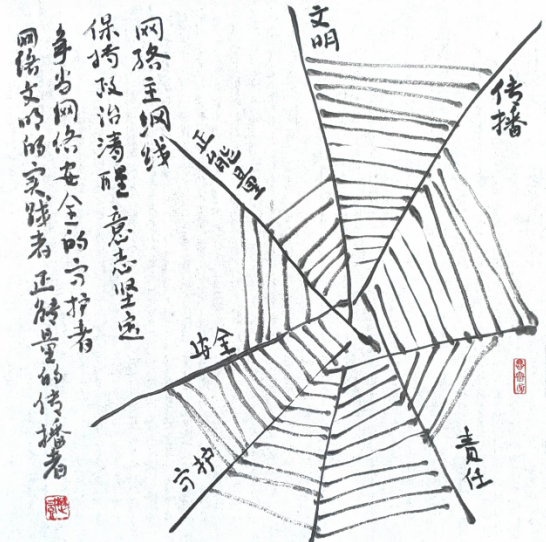 网络主纲线
保持政治清醒意志坚定
争当网络安全的守护者
网络文明的实践者正能量的传播者
文明
传播
正能量
安全
守护
责任